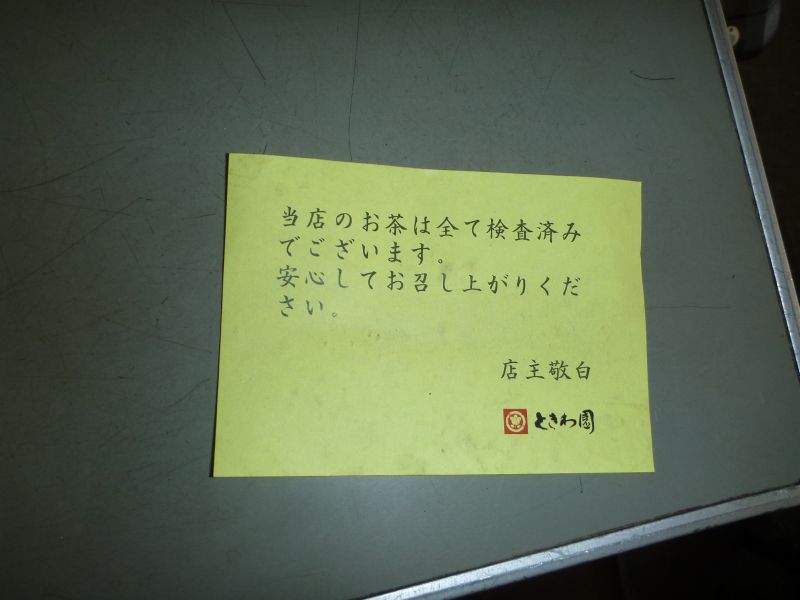 当店のお茶は全て検査済み
でございます。
安心してお召し上がりくだ
さい。
店主敬白
ときわ園